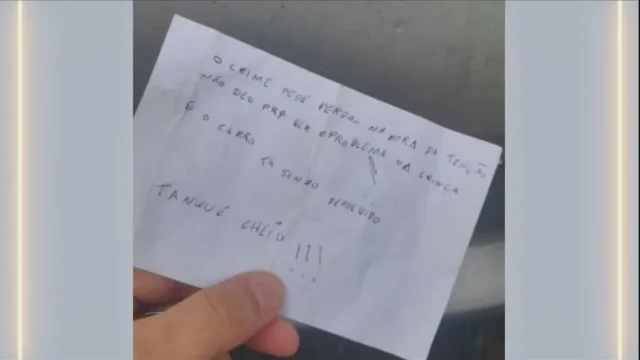 O CRIME PEDE PERDAO NA HORA DA TENÇÃO
NÃO DEU PRA VER O PROBLEMA DA CRIANÇA
E O CARRO
TÁ SENDO DEVOLVIDO
TANQUE CHEIO !!!